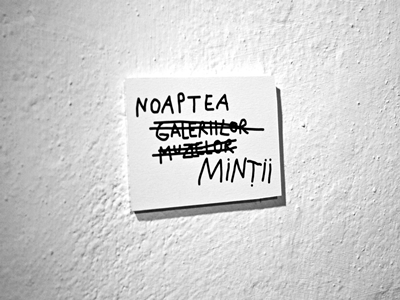 NOAPTEA
GALERIILOR
MUZEELOR
MiNȚii